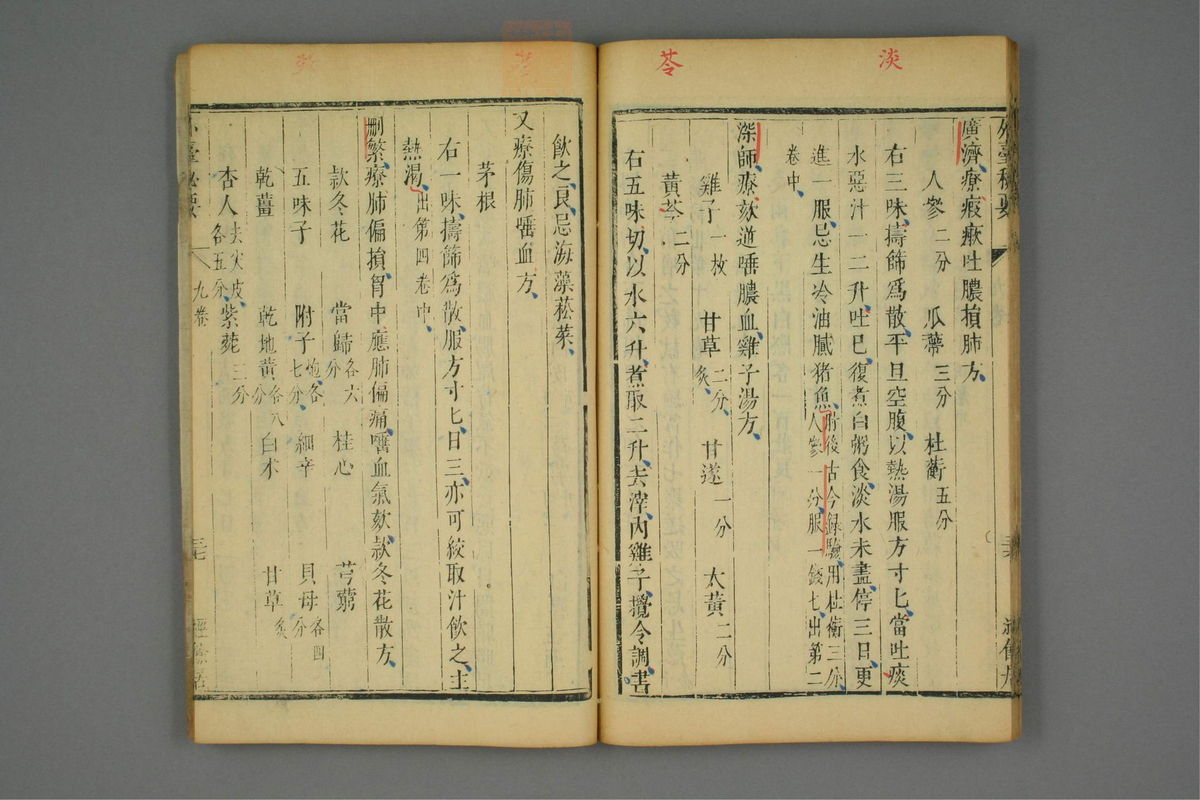 淡
苓
廣濟療瘕瘷吐膿損肺方
人參二分 瓜蔕三分 杜蘅五分
右三味擣篩爲散平旦空腹以熱湯服方寸匕當吐痰
水惡汁一二升吐巳復煮白粥食淡水未盡停三日更
進一服忌生冷油膩猪魚肘後古今録驗用杜衡三分
人參一分服一錢匕出第二
卷中
深師療欬逆唾膿血雞子湯方
雞子一枚 甘草二分炙 甘遂一分 大黃二分
黃芩二分
右五味切以水六升煮取二升去滓内雞子攪令調盡
飲之良忌海藻菘菜
又療傷肺唾血方
茅根
右一味擣篩爲散服方寸匕日三亦可絞取汁飲之主
熱渴出第四卷中
刪繁療肺偏損胷中應肺偏痛唾血氣欬款冬花散方
款冬花 當歸各六分 桂心 芎藭
五味子 附子炮各七分 細辛 貝母各四分
乾薑 乾地黃各八分 白朮 甘草炙
杏人去尖皮各五分 紫菀三分
外臺秘要
九卷
三七
經餘居